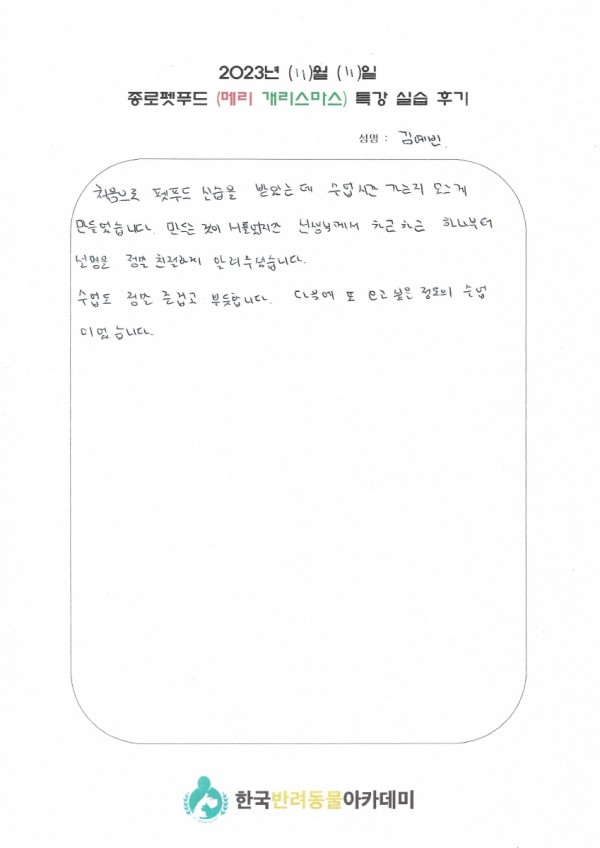 2023년 (11)월 (11)일
종로펫푸드 (메리 개리스마스) 특강 실습 후기
성명 : 김예빈
처음으로 펫푸드 실습을 받았는데 수업시간 가는지 모르게
만들었습니다. 만드는 것이 서툴렀지만 선생님께서 차근차근 하나부터
설명을 정말 친절하게 알려주셨습니다.
수업도 정말 즐겁고 뿌듯합니다. 다음에 또 오고 싶은 정도의 수업
이었습니다.
한국반려동물아카데미